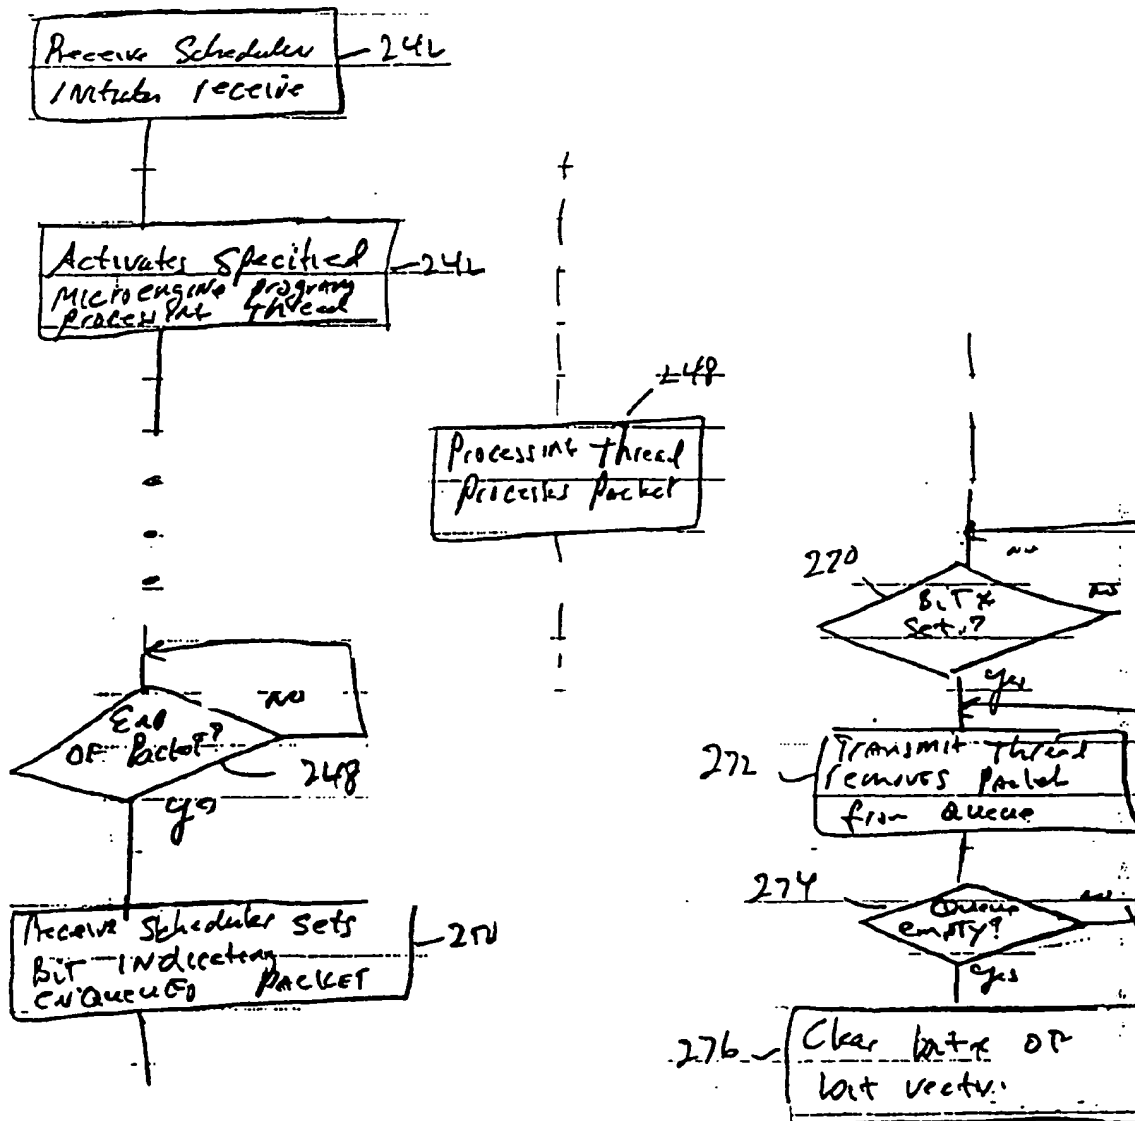 Receive Scheduler
Initiates receive
242
Activates Specified
Microengine program
processing thread
242
248
Processing thread
processes packet
End
OF Packet?
no
248
yes
Receive Scheduler sets
BIT INdicating
ENQUEUED PACKET
250
no
270
BIT x
set?
no
yes
272
Transmit thread
removes packet
from Queue
274
Queue
empty?
no
yes
276
Clear bit x OF
bit vector